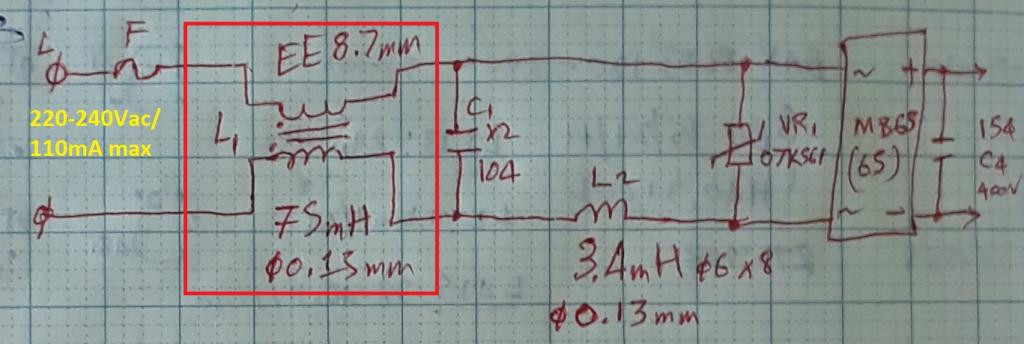 L
F
EE 8.7mm
220-240Vac/
110mA max
L1
75mH
φ0.13mm
C1
X2
104
L2
3.4mH φ6x8
φ0.13mm
VR1
07K561
~ +
MB6S
(6S)
~ −
154
C4
400V